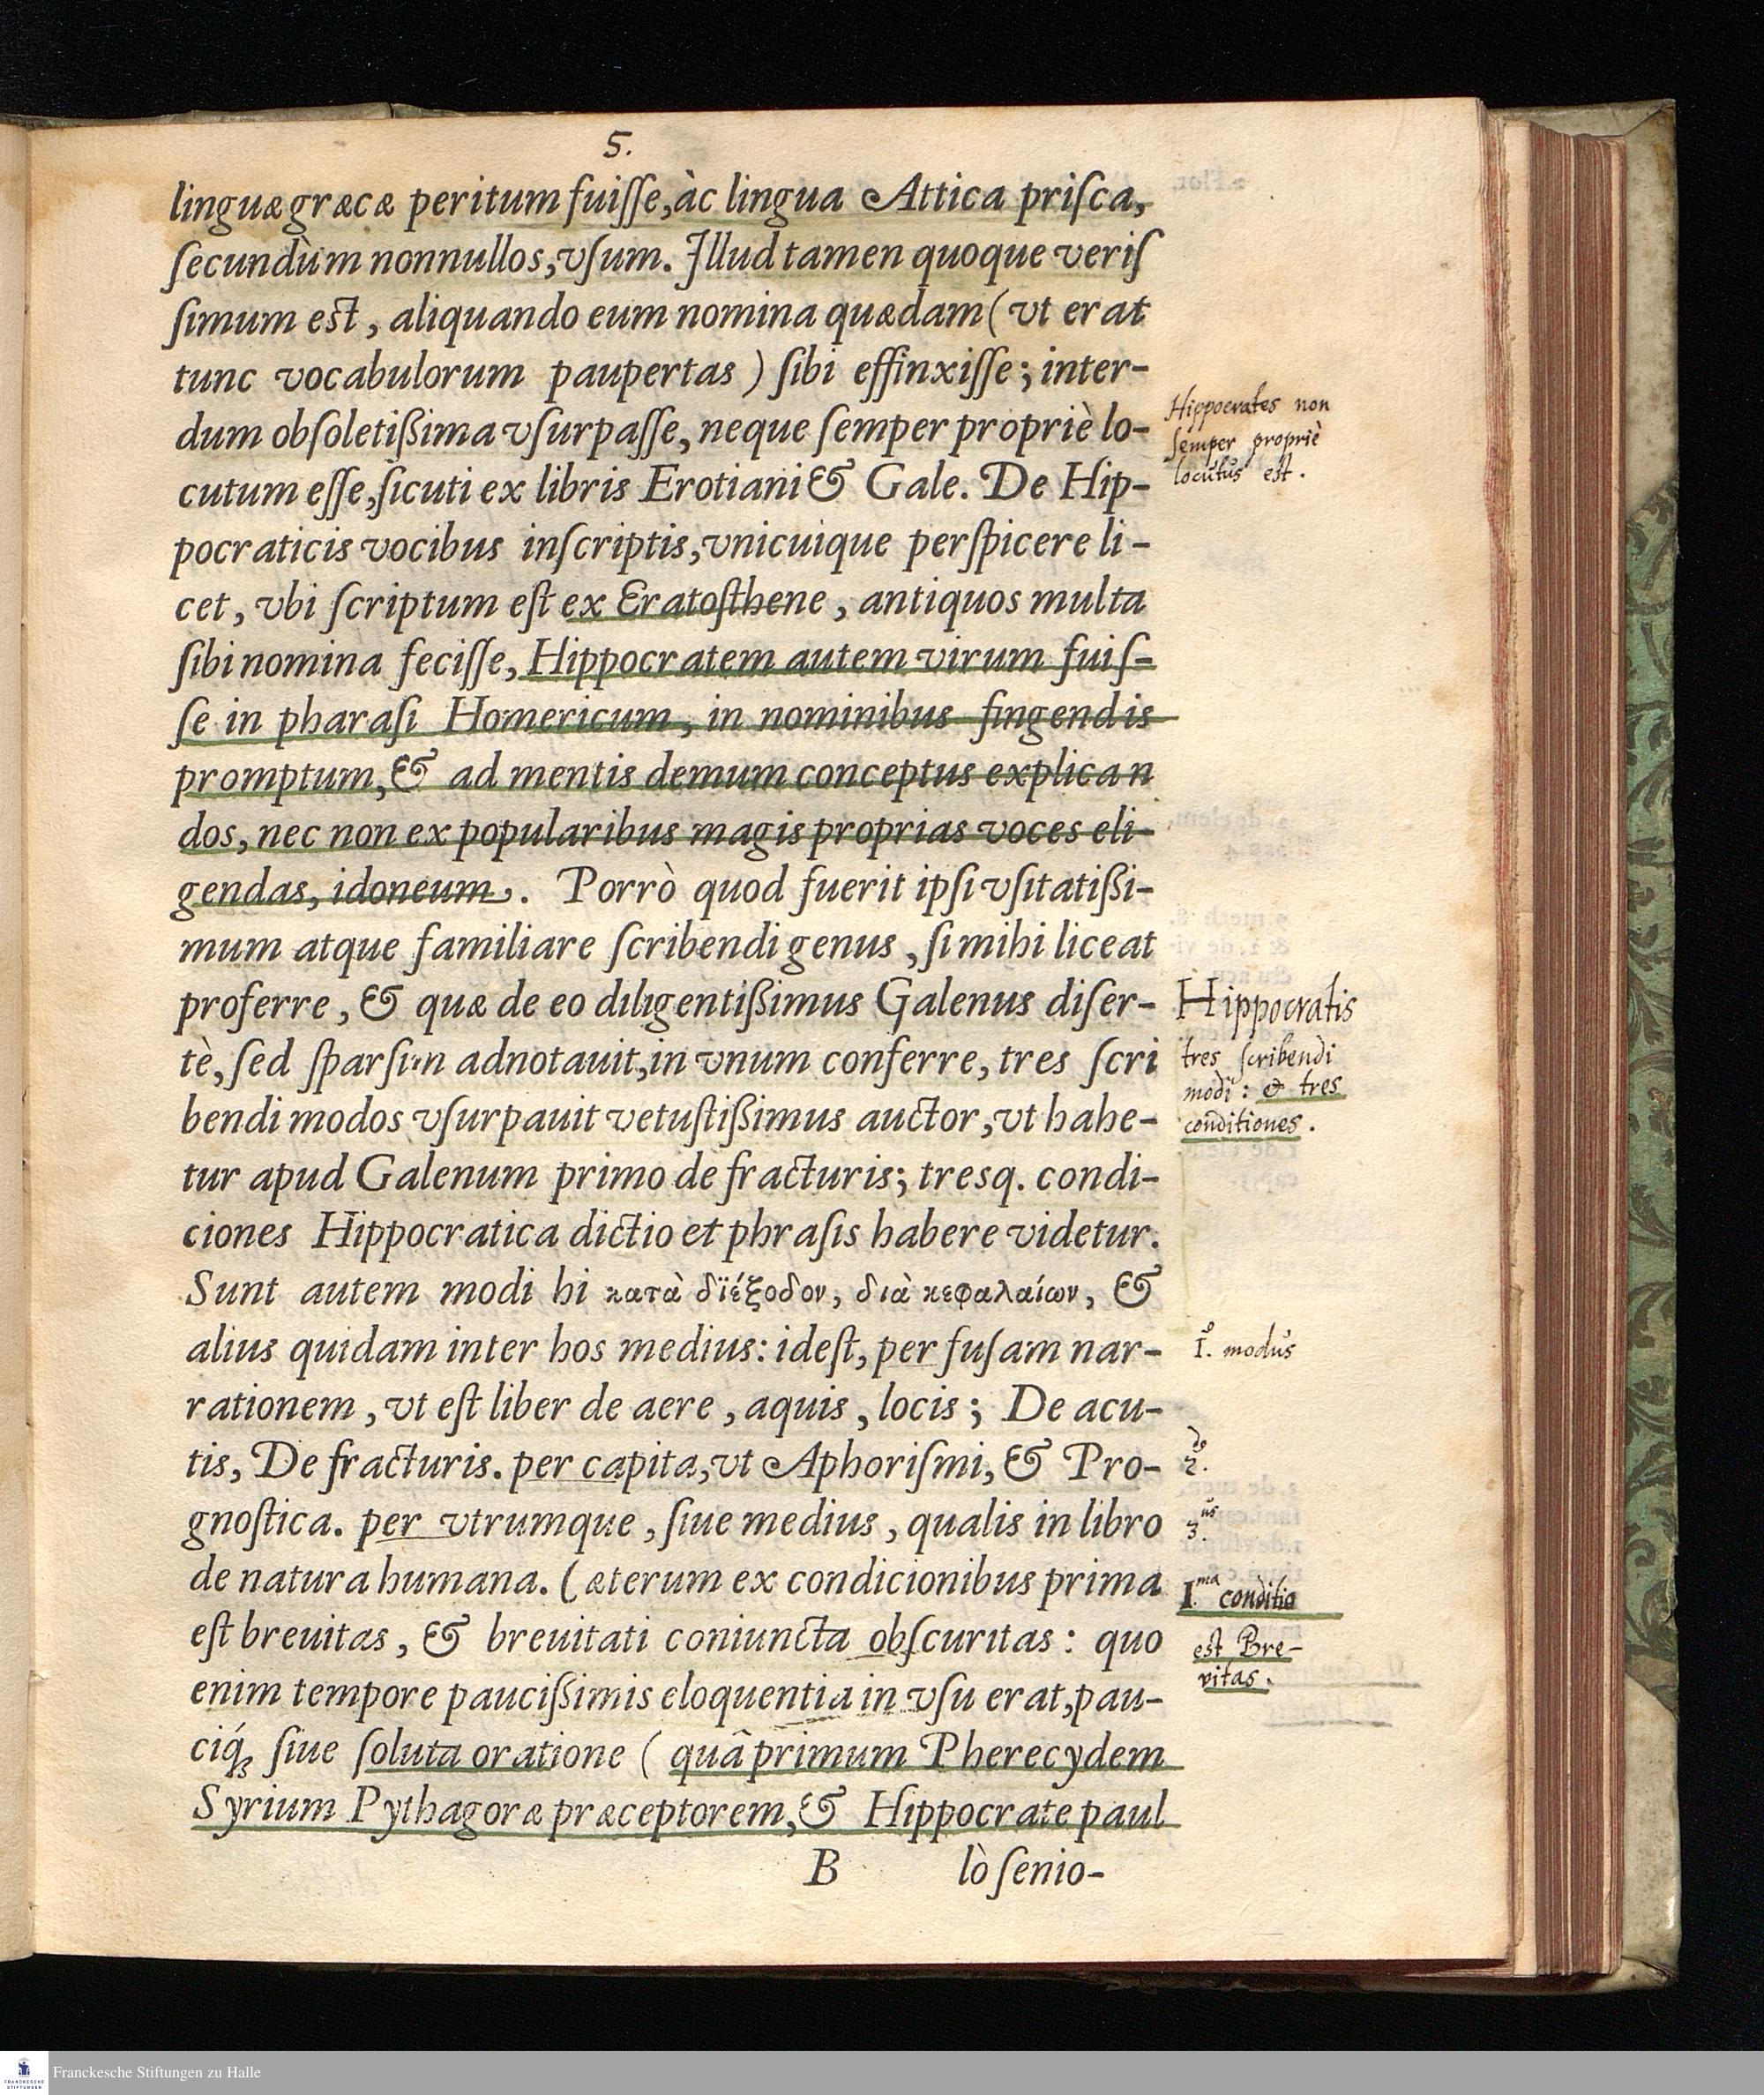 5.
linguægræcæ peritum fuiſſe,àc lingua Attica priſca,
ſecundùm nonnullos,vſum. Illud tamen quoque veriſ
ſimum est, aliquando eum nomina quædam (vt erat
tunc vocabulorum paupertas) ſibi effinxiſſe; inter-
dum obſoletißima vſurpaſſe, neque ſemper propriè lo-
cutum eſſe,ſicuti ex libris Erotiani & Gale. De Hip-
pocraticis vocibus inſcriptis,vnicuique perſpicere li-
cet, vbi ſcriptum eſt ex Eratoſthene, antiquos multa
ſibi nomina feciſſe, Hippocratem autem virum fuiſ-
ſe in pharaſi Homericum, in nominibus fingendis
promptum, & ad mentis demum conceptus explican
dos, nec non ex popularibus magis proprias voces eli-
gendas, idoneum. Porrò quod fuerit ipſi vſitatißi-
mum atque familiare ſcribendi genus, ſi mihi liceat
proferre, & quæ de eo diligentißimus Galenus diſer-
tè, ſed ſparſim adnotauit,in vnum conferre, tres ſcri
bendi modos vſurpauit vetuſtißimus auctor,vt hahe-
tur apud Galenum primo de fracturis; tresq. condi-
ciones Hippocratica dictio et phraſis habere videtur.
Sunt autem modi hi κατὰ δϊέξοδον, διὰ κεφαλαίων, &
alius quidam inter hos medius: ideſt, per fuſam nar-
rationem, vt eſt liber de aere, aquis, locis; De acu-
tis, De fracturis. per capita,vt Aphoriſmi, & Pro-
gnoſtica. per vtrumque, ſiue medius, qualis in libro
de natura humana. Cæterum ex condicionibus prima
eſt breuitas, & breuitati coniuncta obſcuritas: quo
enim tempore paucißimis eloquentia in vſu erat,pau-
ciq́; ſiue ſoluta oratione (quâ primum Pherecydem
Syrium Pythagoræ præceptorem, & Hippocrate paul
B lò ſenio-
Hippocrates non
ſemper propriè
locutus est.
Hippocratis
tres ſcribendi
modi: & tres
conditiones.
1.º modus
2.do
3.us
1.ma conditio
est Bre-
vitas.
Franckesche Stiftungen zu Halle
FRANCKESCHE
STIFTUNGEN